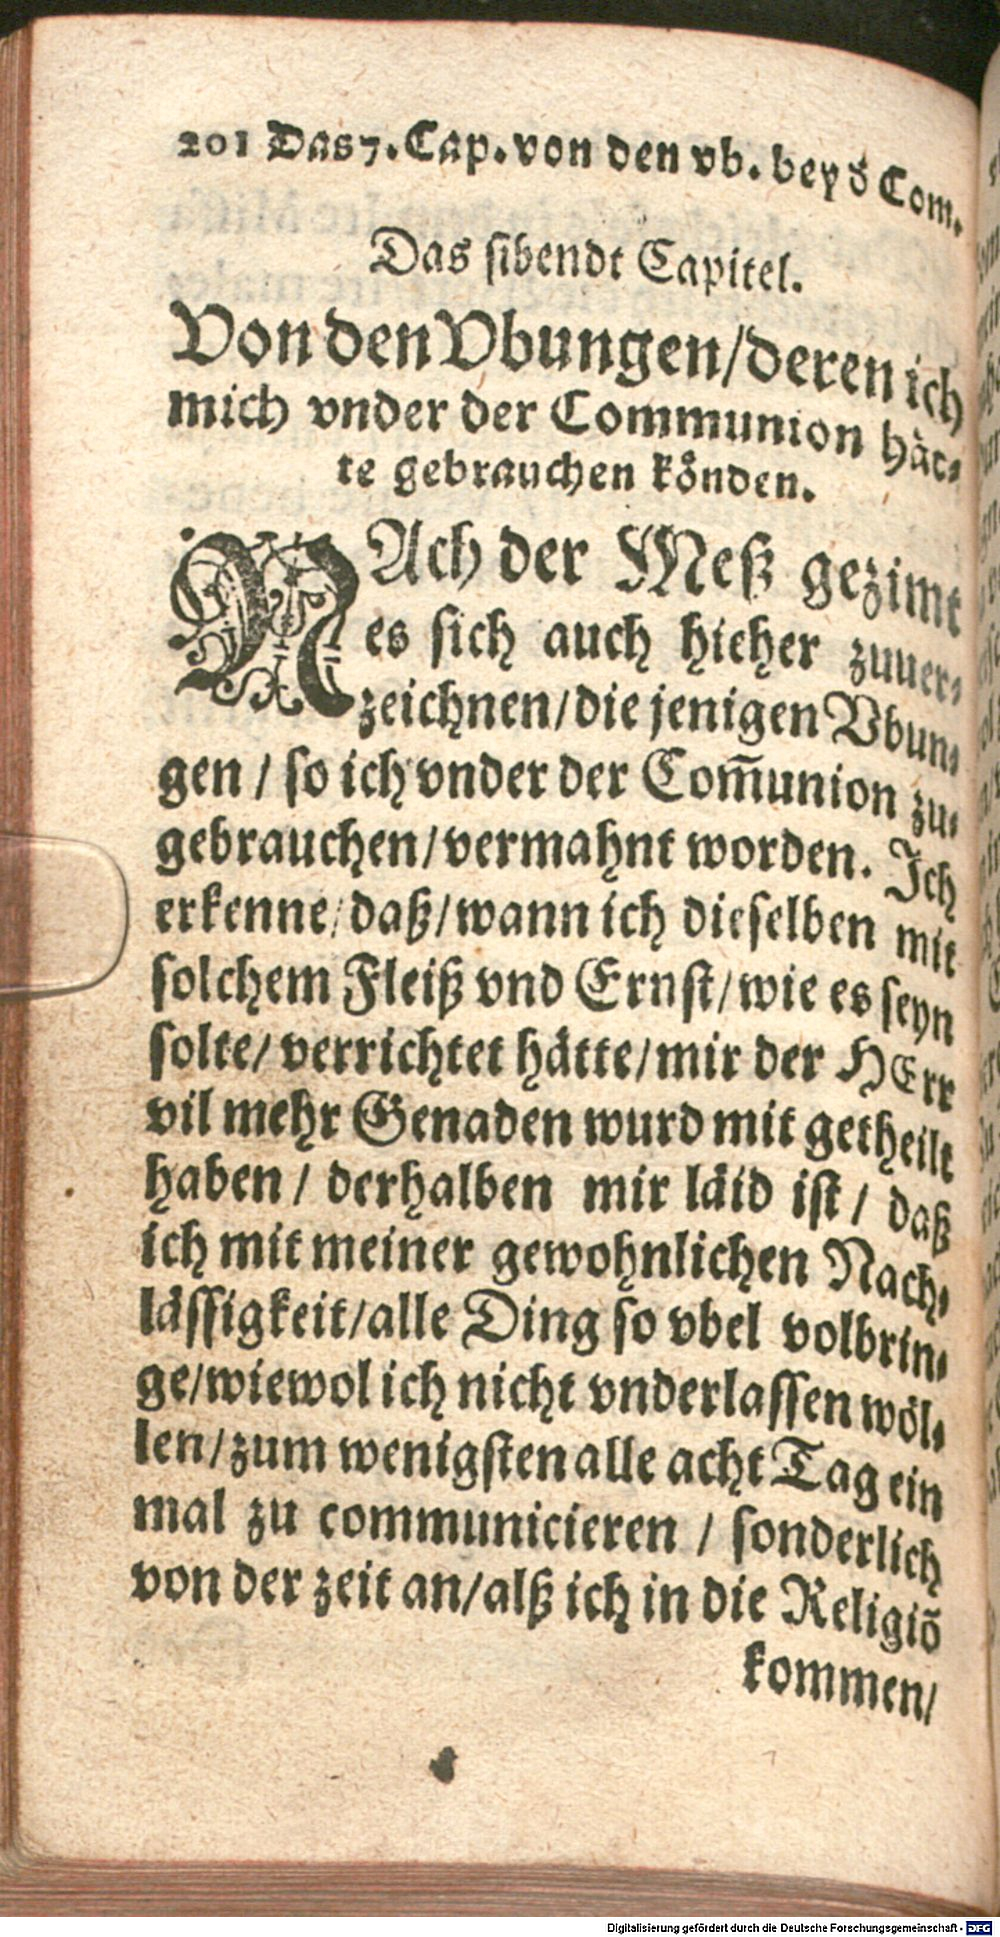 201 Das 7. Cap. von den vb. bey d̕ Com.
Das sibendt Capitel.
Von den Vbungen/ deren ich
mich vnder der Communion hät-
te gebrauchen könden.
NAch der Meß gezimt
es sich auch hieher zuuer-
zeichnen/ die jenigen Vbun-
gen / so ich vnder der Com̃union zu-
gebrauchen/ vermahnt worden. Ich
erkenne/ daß/ wann ich dieselben mit
solchem Fleiß vnd Ernst/ wie es seyn
solte/ verrichtet hätte/ mir der HErr
vil mehr Genaden wurd mit getheilt
haben / derhalben mir läid ist / daß
ich mit meiner gewohnlichen Nach-
lässigkeit/ alle Ding so vbel volbrin-
ge/ wiewol ich nicht vnderlassen wöl-
len/ zum wenigsten alle acht Tag ein
mal zu communicieren / sonderlich
von der zeit an/ alß ich in die Religiõ
kommen/
Digitalisierung gefördert durch die Deutsche Forschungsgemeinschaft - DFG